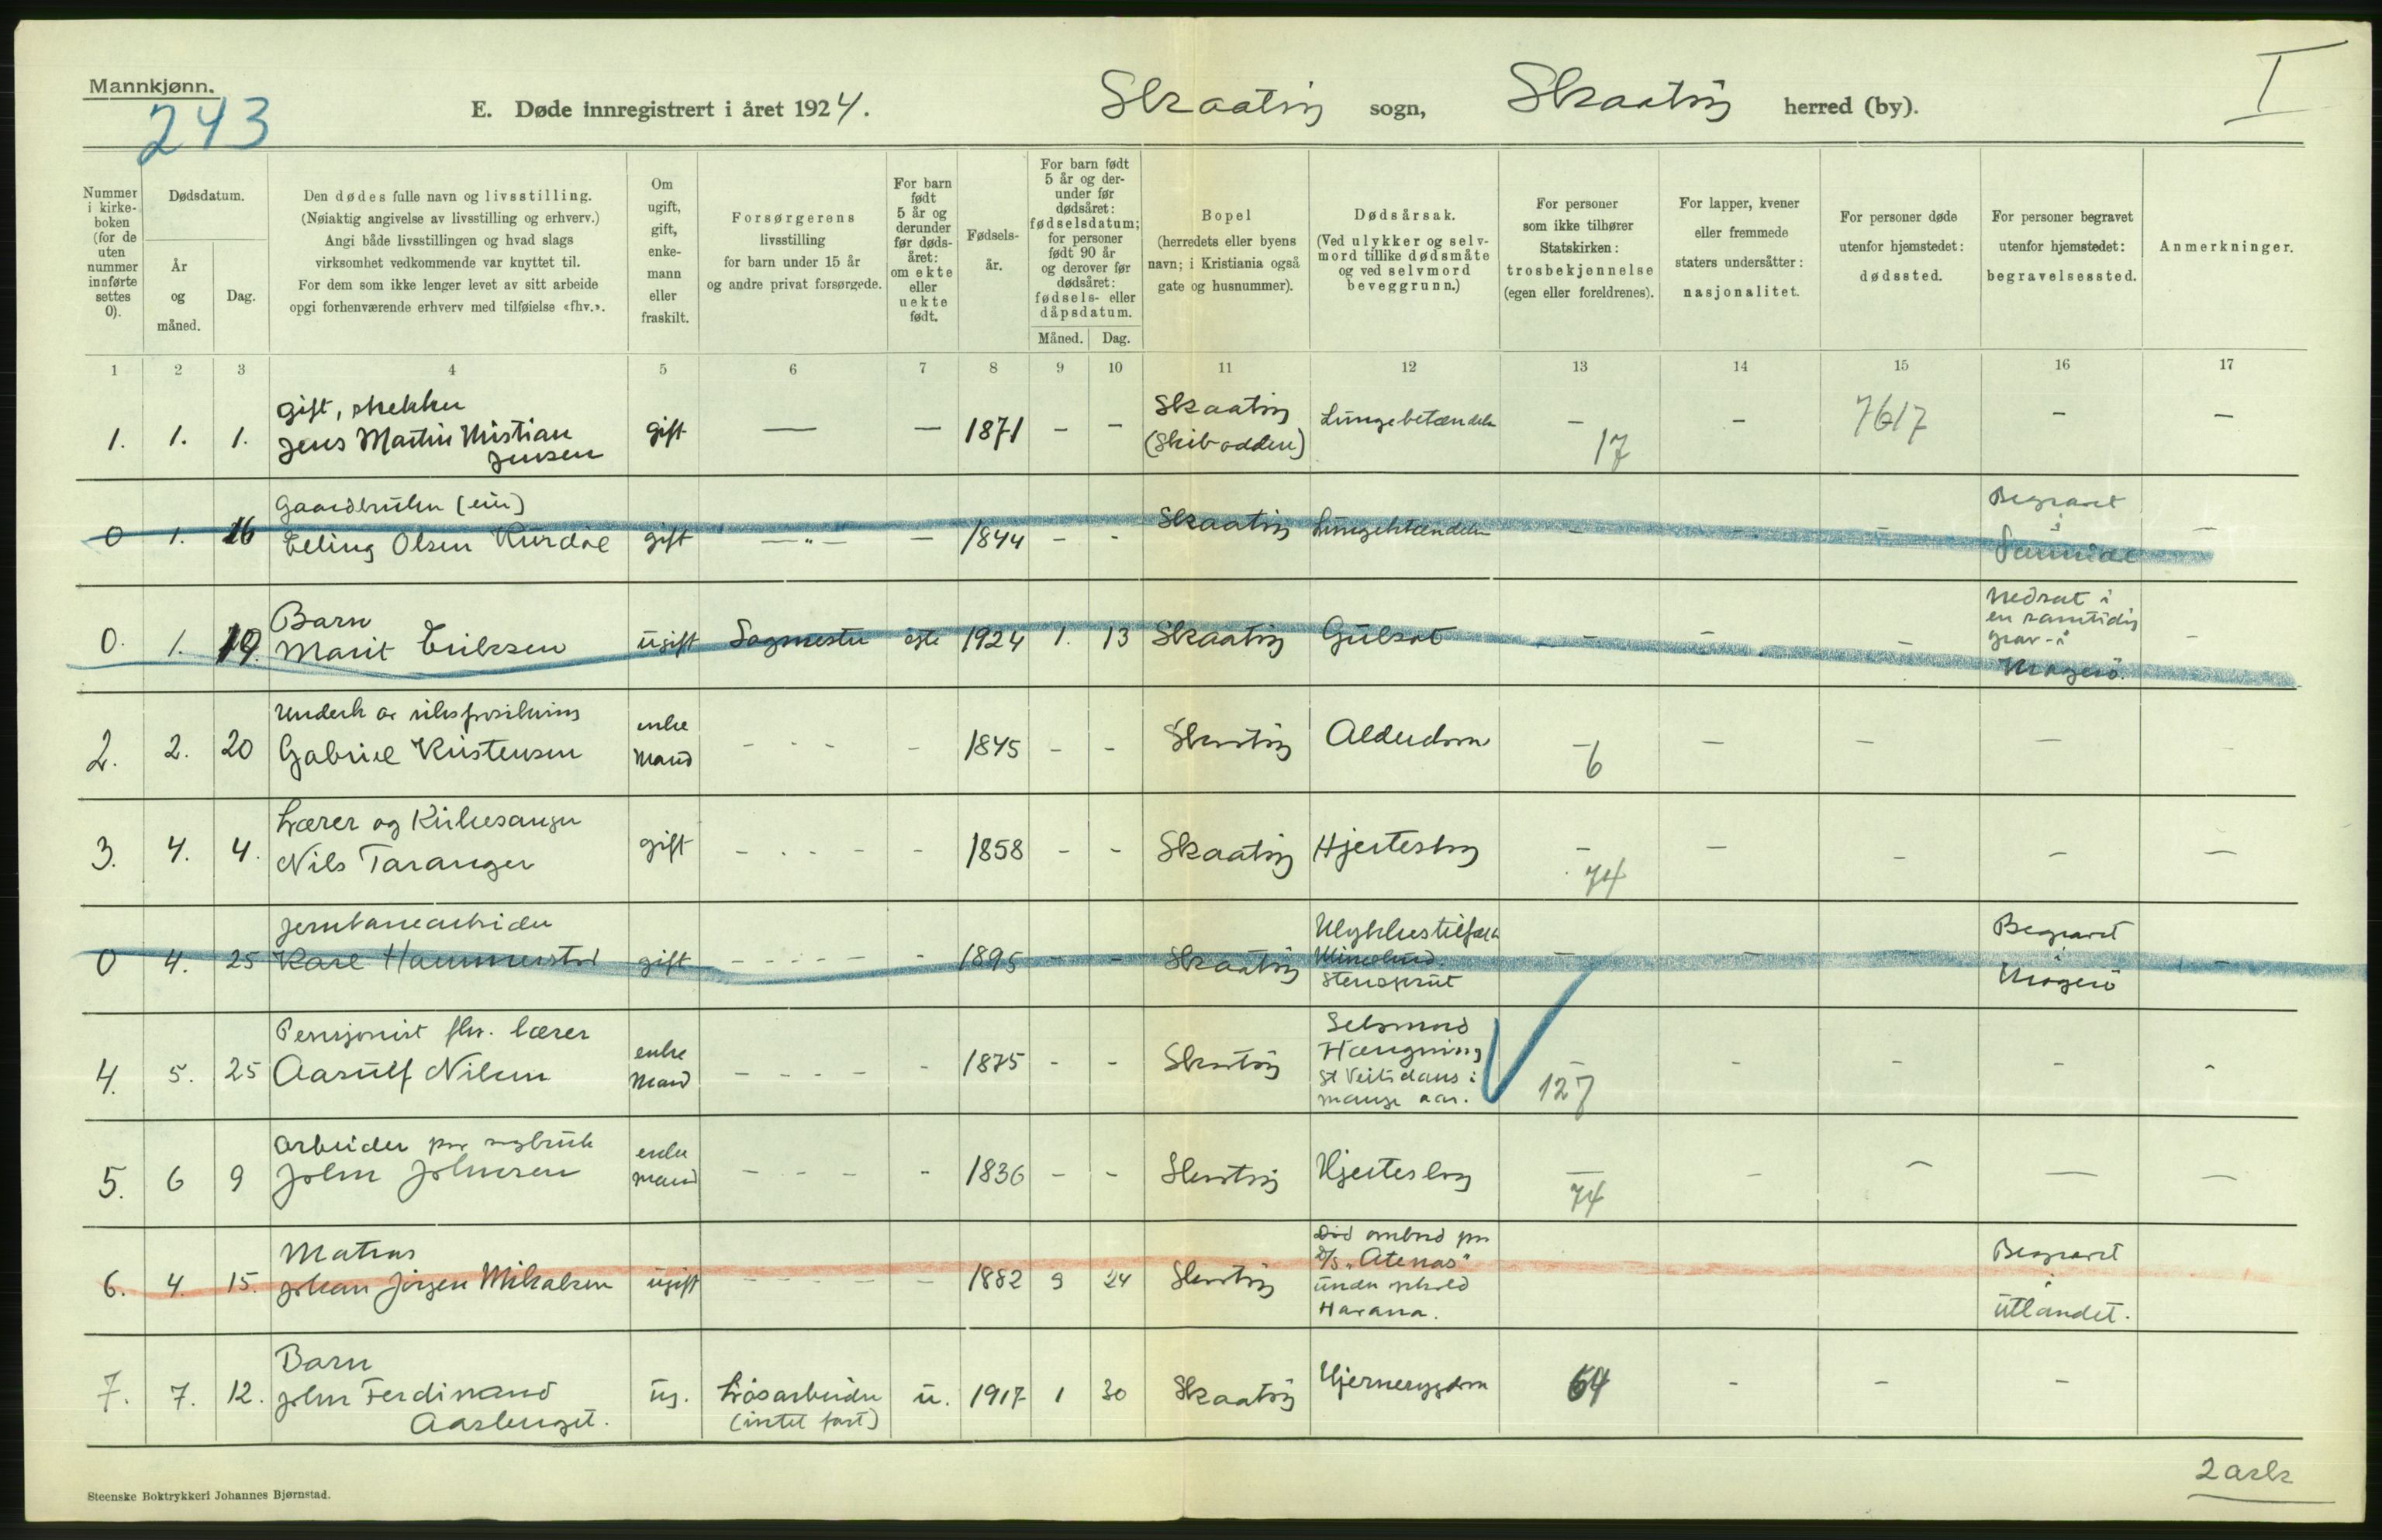 Mannkjønn.
243
E. Døde innregistrert i året 1924.
Skaatøy sogn, Skaatøy herred (by).
I
Nummer i kirkeboken (for de uten nummer innførte settes 0).
Dødsdatum.
År og måned.
Dag.
Den dødes fulle navn og livsstilling.
(Nøiaktig angivelse av livsstilling og erhverv.)
Angi både livsstillingen og hvad slags
virksomhet vedkommende var knyttet til.
For dem som ikke lenger levet av sitt arbeide
opgi forhenværende erhverv med tilføielse «fhv.».
Om ugift, gift, enkemann eller fraskilt.
Forsørgerens
livsstilling
for barn under 15 år
og andre privat forsørgede.
For barn født 5 år og derunder før dødsåret: om ekte eller uekte født.
Fødselsår.
For barn født 5 år og derunder før dødsåret: fødselsdatum; for personer født 90 år og derover før dødsåret: fødsels- eller dåpsdatum.
Måned. Dag.
Bopel
(herredets eller byens
navn; i Kristiania også
gate og husnummer).
Dødsårsak.
(Ved ulykker og selvmord tillike dødsmåte
og ved selvmord
beveggrunn.)
For personer
som ikke tilhører
Statskirken:
trosbekjennelse
(egen eller foreldrenes).
For lapper, kvener
eller fremmede
staters undersåtter:
nasjonalitet.
For personer døde
utenfor hjemstedet:
dødssted.
For personer begravet
utenfor hjemstedet:
begravelsessted.
Anmerkninger.
1 2 3 4 5 6 7 8 9 10 11 12 13 14 15 16 17
gift,
1. 1. 1. Jens Martin Kristian Jensen gift — — 1871 - - Skaatøy (Skibodden) Lungebetændelse - 17 - 7617 - -
Gaardbruker (eier)
0 1. 16 Elling Olsen Kurdøl gift —"— — 1844 - - Skaatøy Lungebetændelse - - - Begravet i Sannidal -
Barn
0. 1. 19. Marit Eriksen ugift Sagmester egte 1924 1. 13 Skaatøy Gulsot - - - Nedsat i en samtidig grav i Kragerø. -
Underh av
2. 2. 20 Gabriel Kristensen enke mand - - - - 1845 - - Skaatøy Alderdom - 6 - - - -
Lærer og Kirkesanger
3. 4. 4. Nils Taranger gift - - - - - 1858 - - Skaatøy Hjerteslag - 74 - - - -
Jernbanearbeider
0 4. 25 Karl Hammerstad gift - - - - - - 1895 - - Skaatøy Ulykkestilfælde Minelud. Stensprut - - - Begravet i Kragerø -
Pensjonist fhv. lærer
4. 5. 25 Aasulf Nilsen enke mand - - - - - 1875 - - Skaatøy Selvmord Hængning St Veitsdans i mange aar. - 127 - - - -
Arbeider paa sagbruk
5. 6 9 John Johnsen enke mand - - - - 1836 - - Skaatøy Hjerteslag - 74 - - - -
Matros
6. 4. 15. Johan Jørgen Mikalsen ugift - - - - - 1882 9 24 Skaatøy Død ombord paa D/S "Atenas" under ophold Havana. Begravet i utlandet.
Barn
7. 7. 12. John Ferdinand Aaslenget. ug. Løsarbeider (intet fast) u. 1917 1 30 Skaatøy Hjernesygdom 64 - - -
2 ark
Steenske Boktrykkeri Johannes Bjørnstad.